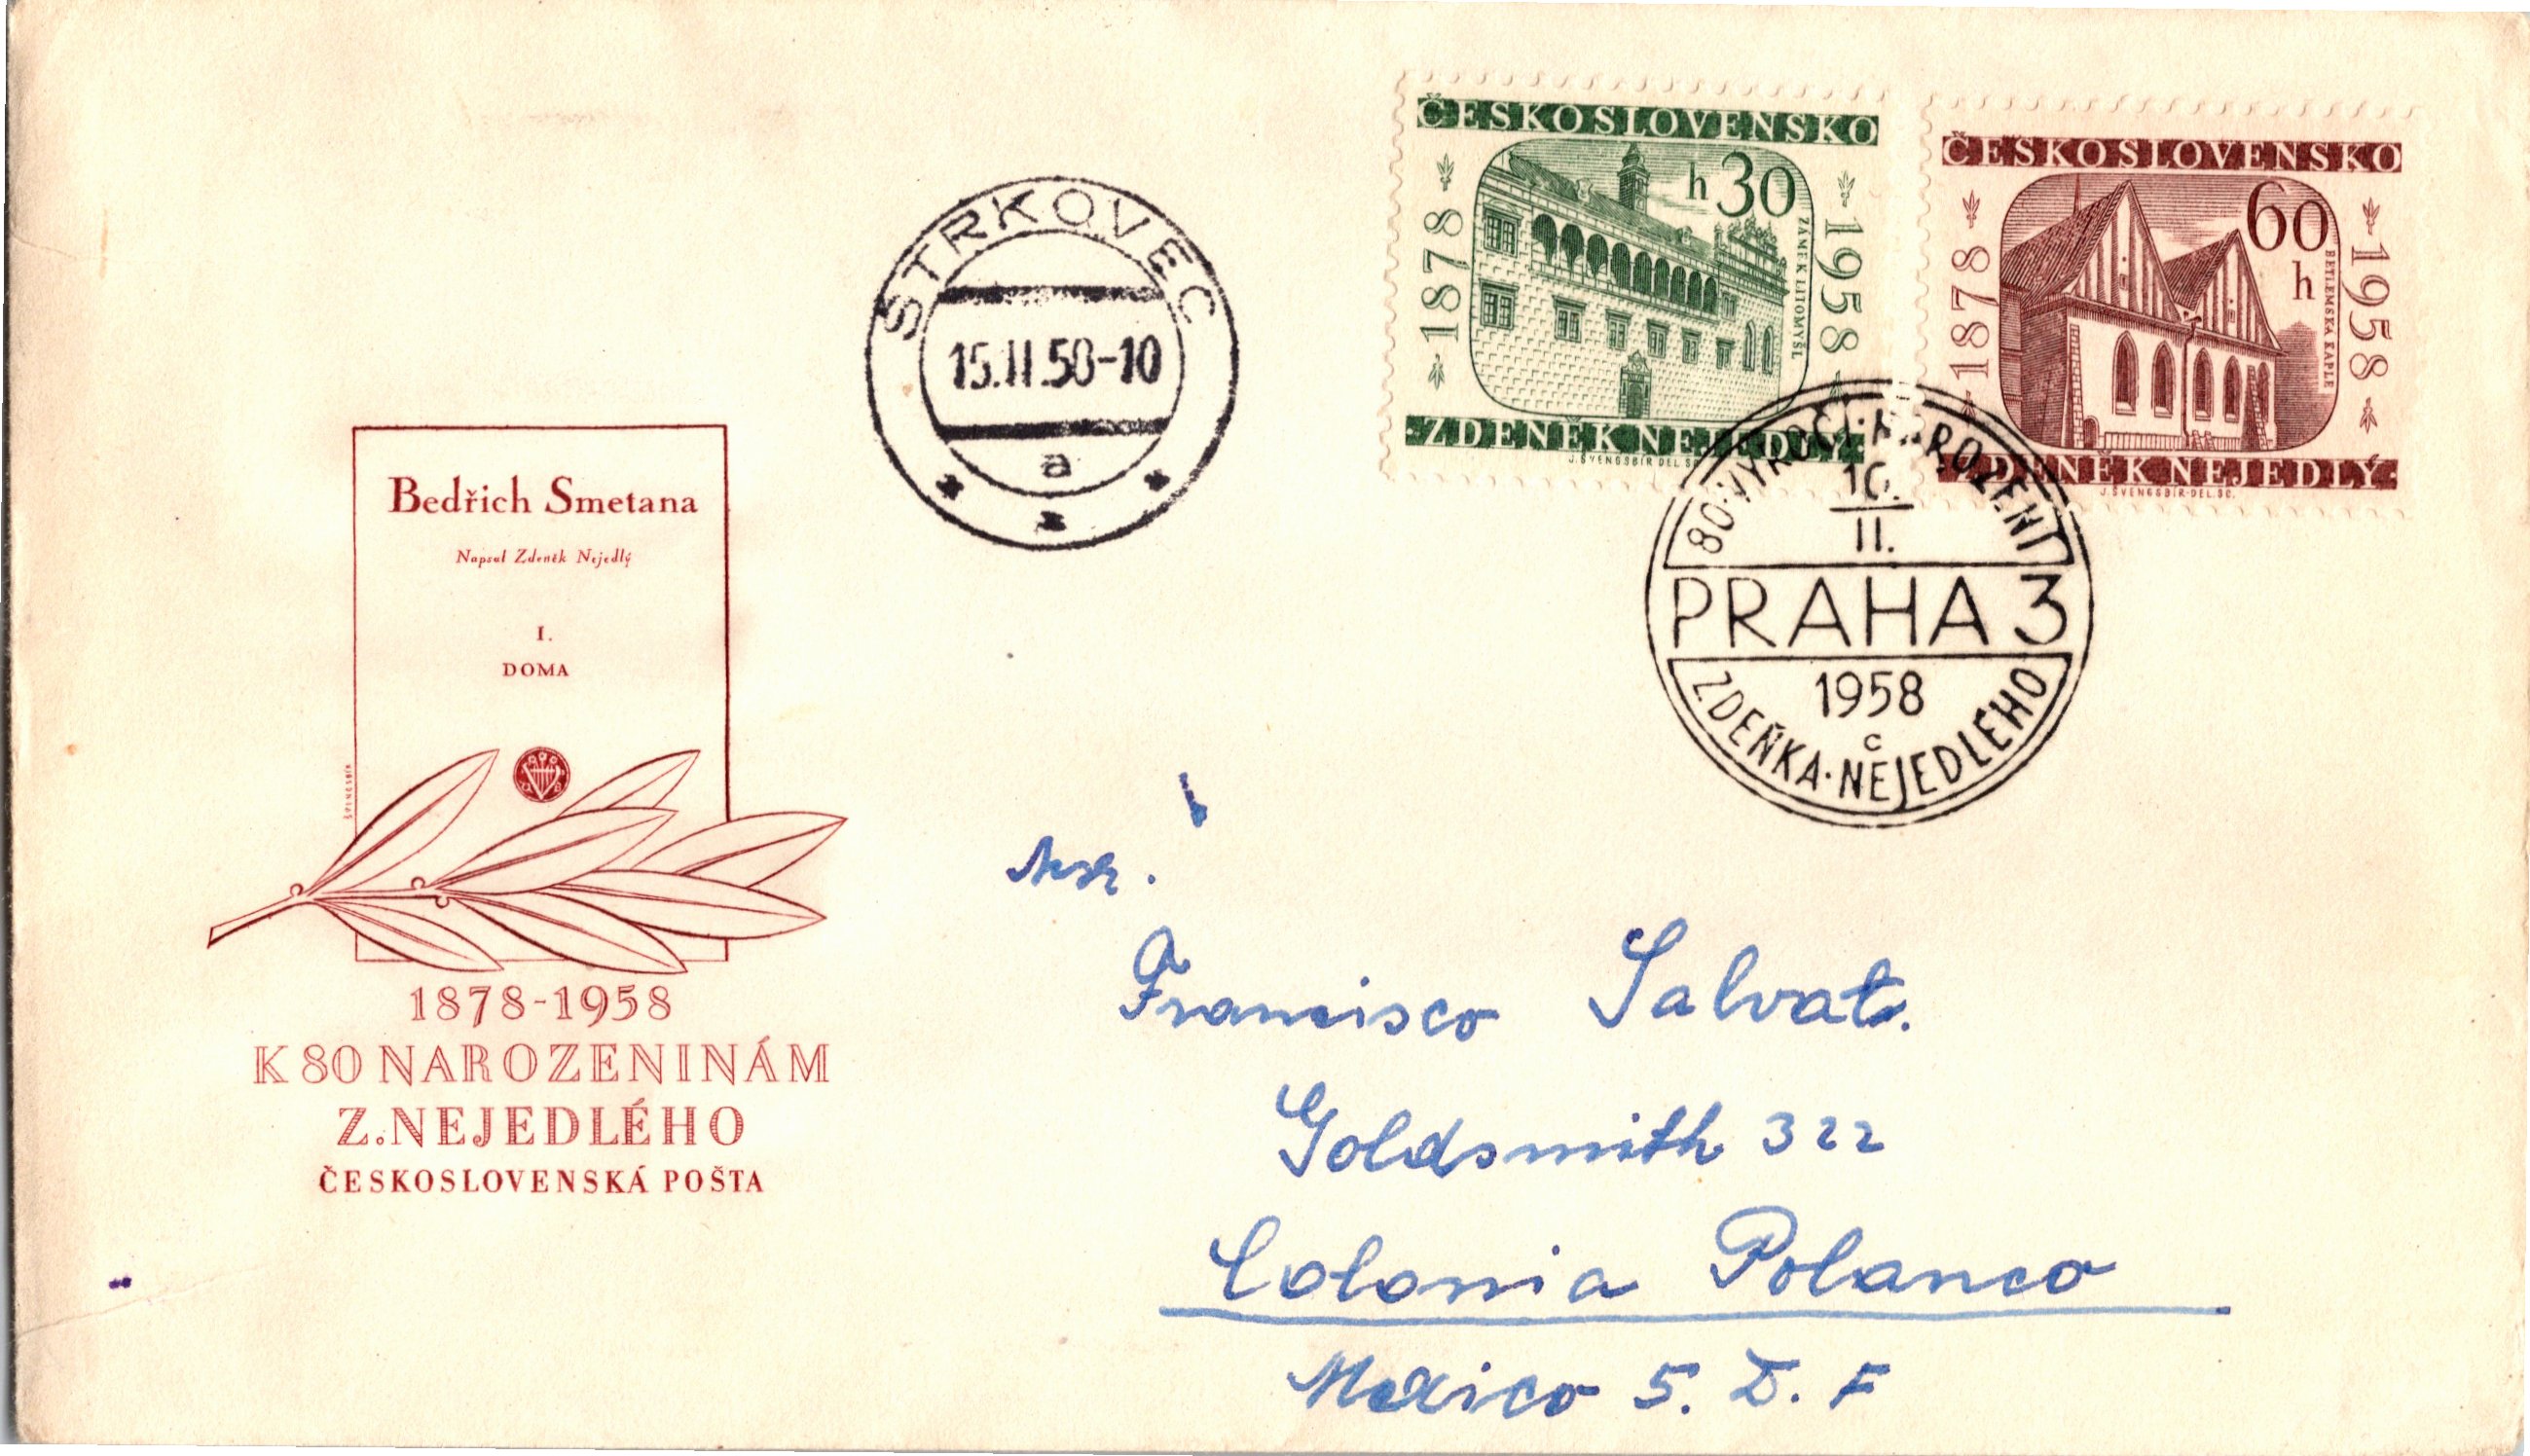 STRKOVEC
15.II.58-10
a
ČESKOSLOVENSKO
h 30
1878
1958
ZÁMEK LITOMYŠL
·ZDENĚK NEJEDLÝ·
J. ŠVENGSBÍR DEL. S
ČESKOSLOVENSKO
60 h
1878
1958
BETLEMSKÁ KAPLE
·ZDENĚK NEJEDLÝ·
J. ŠVENGSBÍR·DEL. SC.
80·VÝROČÍ·NAROZENÍ
10.
II.
PRAHA 3
1958
c
ZDEŇKA·NEJEDLÉHO
Bedřich Smetana
Napsal Zdeněk Nejedlý
I.
DOMA
1878-1958
K 80 NAROZENINÁM
Z. NEJEDLÉHO
ČESKOSLOVENSKÁ POŠTA
Francisco Salvat.
Goldsmith 322
Colonia Polanco
Mexico 5. D. F